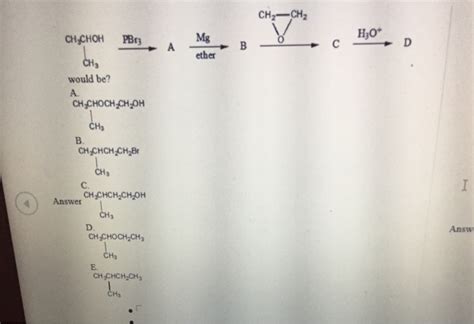 CH₂—CH₂
O
CH₃CHOH PBr₃ A Mg ether B C H₃O⁺ D
CH₃
would be?
A.
CH₃CHOCH₂CH₂OH
CH₃
B.
CH₃CHCH₂CH₂Br
CH₃
C.
Answer CH₃CHCH₂CH₂OH
CH₃
D.
CH₃CHOCH₂CH₃
CH₃
E.
CH₃CHCH₂CH₃
CH₃
Answ